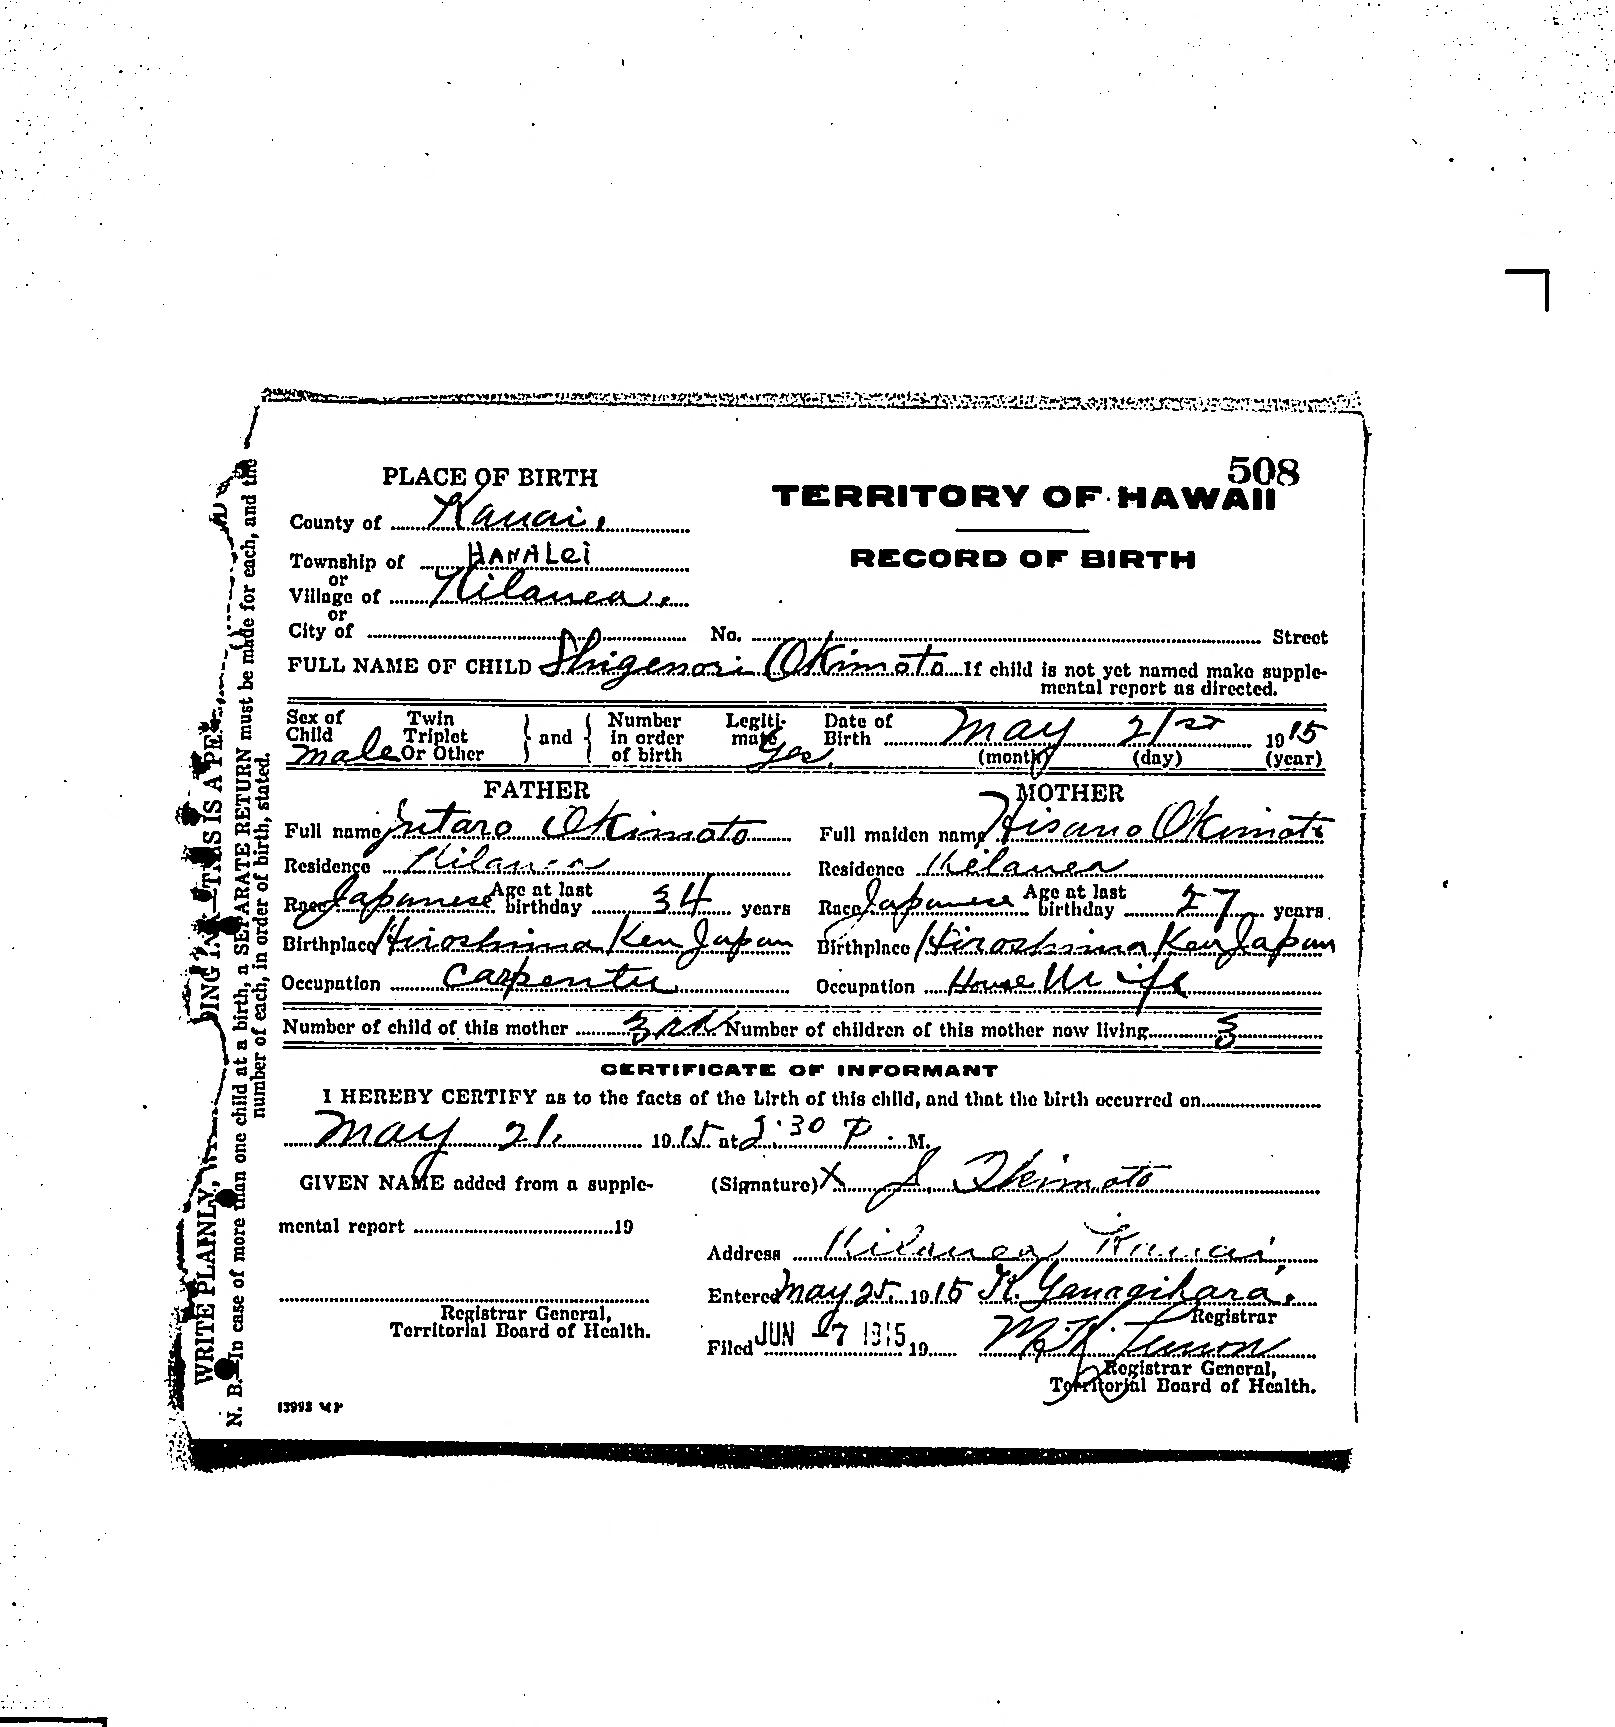 508
PLACE OF BIRTH
TERRITORY OF HAWAII
County of Kauai.
Township of HANALEI
RECORD OF BIRTH
or
Village of Kilauea.
or
City of No. Street
FULL NAME OF CHILD Shigenori Okimoto If child is not yet named make supple-
mental report as directed.
Sex of Child male Twin Triplet Or Other } and { Number in order of birth Legiti- mate Yes. Date of Birth May 21st 1915
(month) (day) (year)
FATHER MOTHER
Full name Jutaro Okimoto Full maiden name Hisano Okimoto
Residence Kilauea Residence Kilauea
Race Japanese Age at last birthday 34 years Race Japanese Age at last birthday 27 years
Birthplace Hiroshima Ken Japan Birthplace Hiroshima Ken Japan
Occupation Carpenter Occupation House Wife
Number of child of this mother 3rd Number of children of this mother now living 3
CERTIFICATE OF INFORMANT
I HEREBY CERTIFY as to the facts of the birth of this child, and that the birth occurred on
May 21. 1915 at 2:30 P. M.
GIVEN NAME added from a supple- (Signature) X J. Okimoto
mental report 19
Address Kilauea Kauai
Entered May 25. 1915 K. Yanagihara.
Registrar General, Registrar
Territorial Board of Health.
Filed JUN 7 1915 19
Registrar General,
Territorial Board of Health.
13993
WRITE PLAINLY, THIS IS A PE
N. B.—In case of more than one child at a birth, a SEPARATE RETURN must be made for each, and the
number of each, in order of birth, stated.